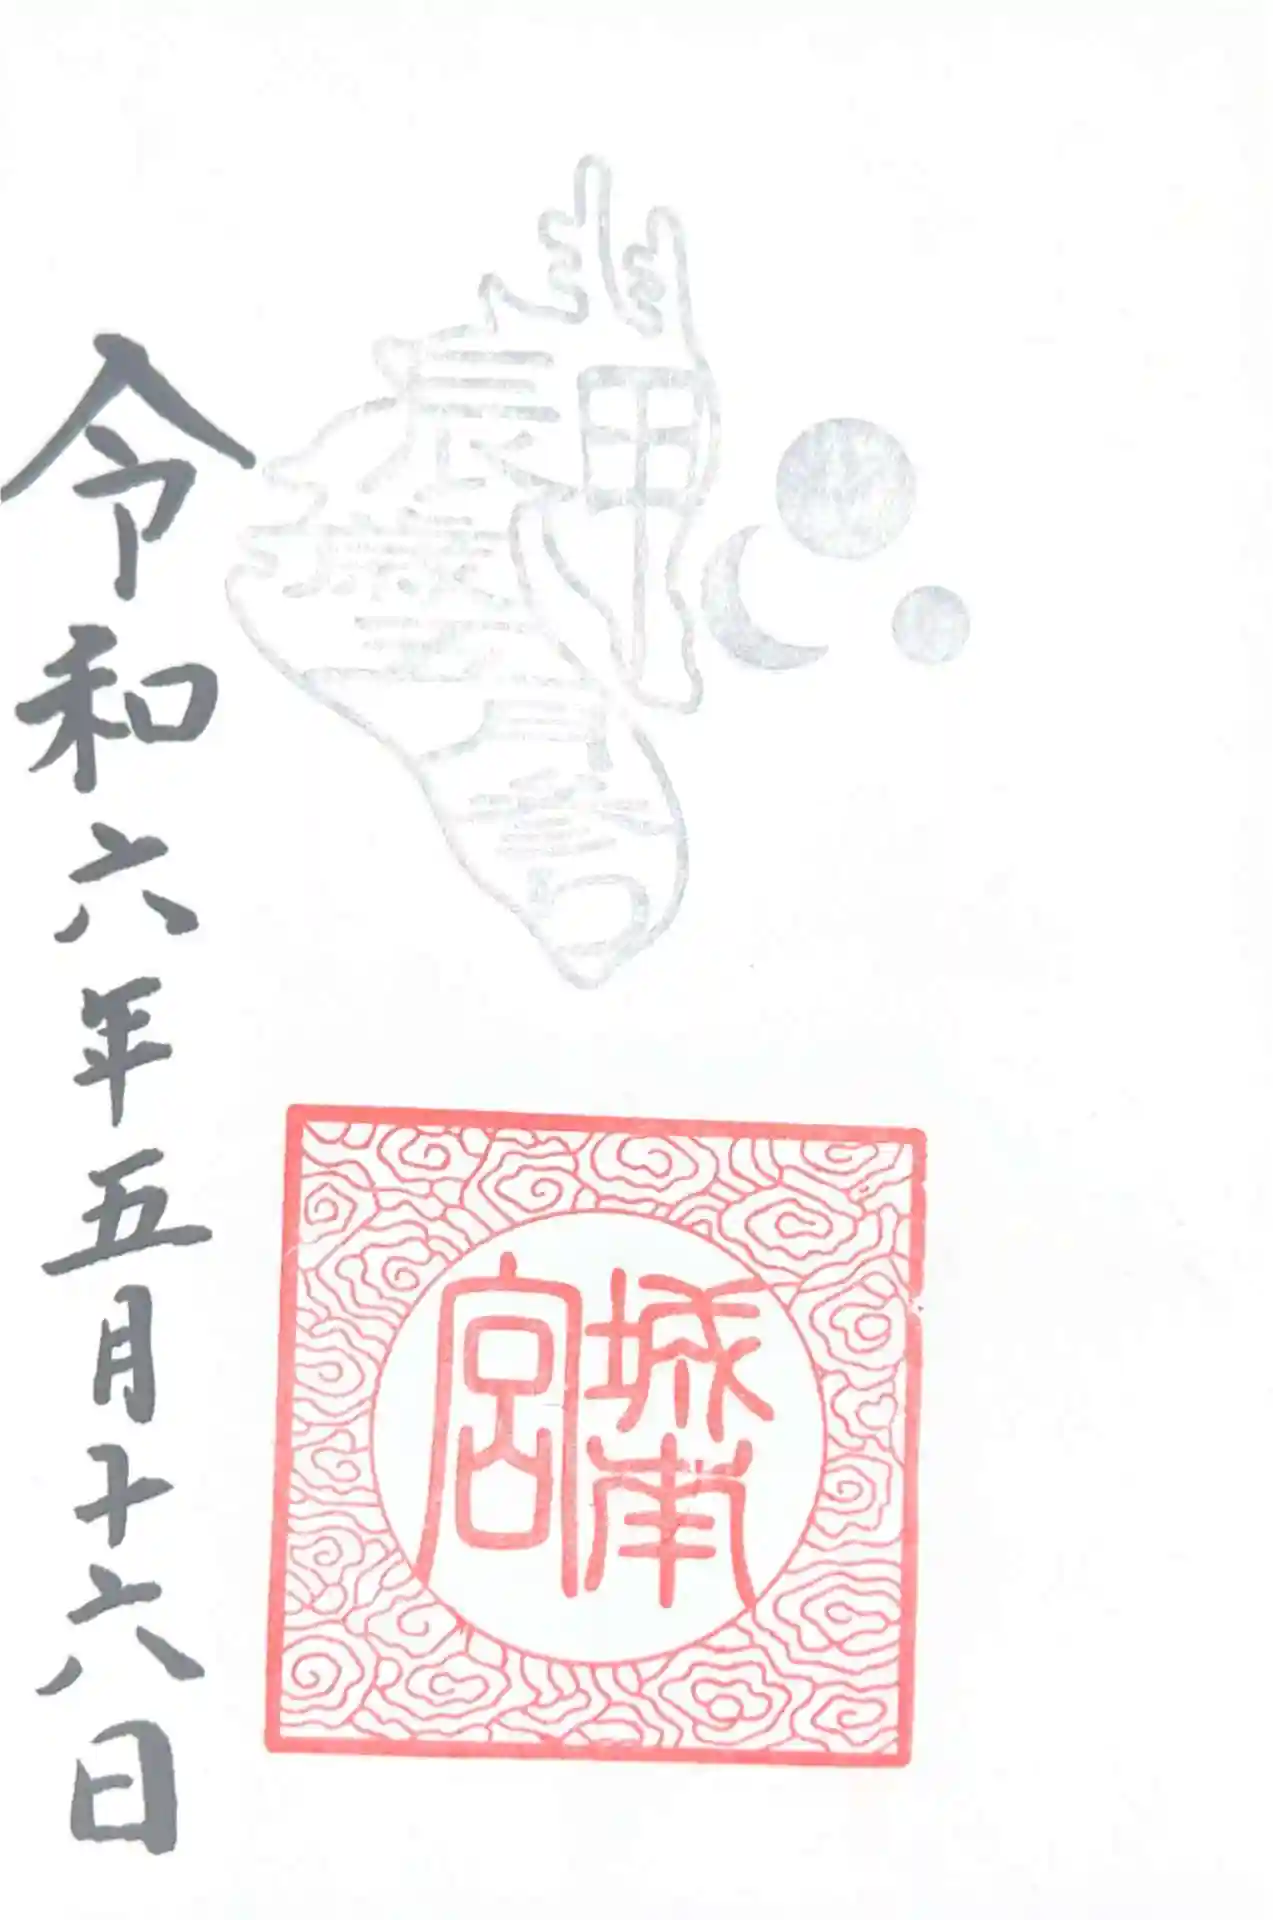 甲
辰
歳
城南
宮
令和六年五月十六日